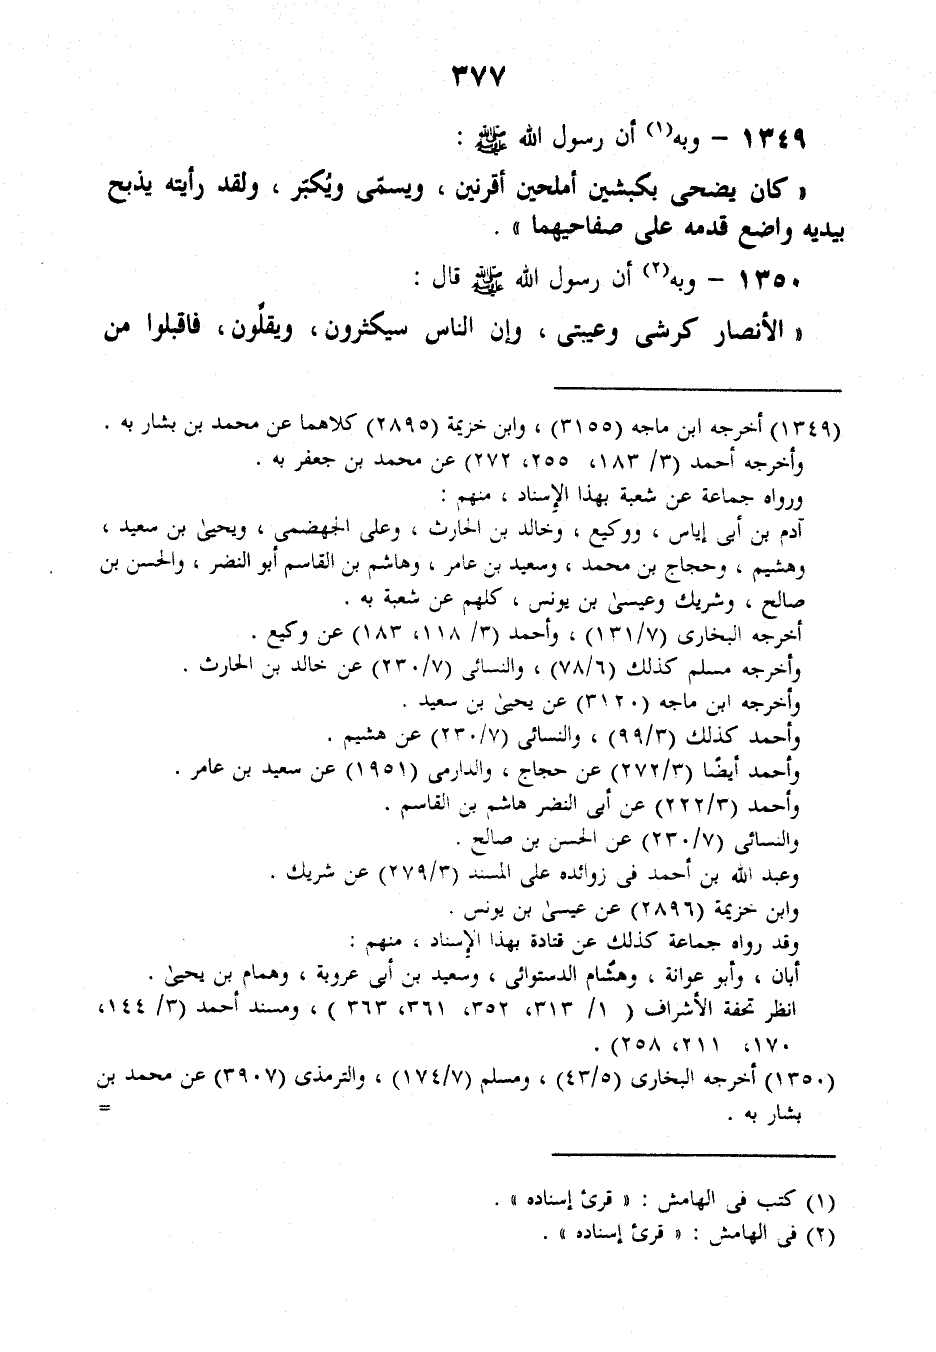 ٣٧٧
١٣٤٩ – وبه(١) أن رسول الله ﷺ :
« كان يضحى بكبشين أملحين أقرنين ، ويسمّى ويُكبّر ، ولقد رأيته يذبح
بيديه واضع قدمه على صفاحيهما » .
١٣٥٠ – وبه(٢) أن رسول الله ﷺ قال :
« الأنصار كرشى وعيبتى ، وإن الناس سيكثرون ، ويقلّون ، فاقبلوا من
(١٣٤٩) أخرجه ابن ماجه (٣١٥٥) ، وابن خزيمة (٢٨٩٥) كلاهما عن محمد بن بشار به .
وأخرجه أحمد (٣/ ١٨٣، ٢٥٥، ٢٧٢) عن محمد بن جعفر به .
ورواه جماعة عن شعبة بهذا الإسناد ، منهم :
آدم بن أبى إياس ، ووكيع ، وخالد بن الحارث ، وعلى الجهضمى ، ويحيىٰ بن سعيد ،
وهشيم ، وحجاج بن محمد ، وسعيد بن عامر ، وهاشم بن القاسم أبو النضر ، والحسن بن
صالح ، وشريك وعيسىٰ بن يونس ، كلهم عن شعبة به .
أخرجه البخارى (١٣١/٧) ، وأحمد (٣/ ١١٨، ١٨٣) عن وكيع .
وأخرجه مسلم كذلك (٧٨/٦) ، والنسائى (٢٣٠/٧) عن خالد بن الحارث .
وأخرجه ابن ماجه (٣١٢٠) عن يحيىٰ بن سعيد .
وأحمد كذلك (٩٩/٣) ، والنسائى (٢٣٠/٧) عن هشيم .
وأحمد أيضًا (٢٧٢/٣) عن حجاج ، والدارمى (١٩٥١) عن سعيد بن عامر .
وأحمد (٢٢٢/٣) عن أبى النضر هاشم بن القاسم .
والنسائى (٢٣٠/٧) عن الحسن بن صالح .
وعبد الله بن أحمد فى زوائده على المسند (٢٧٩/٣) عن شريك .
وابن خزيمة (٢٨٩٦) عن عيسىٰ بن يونس .
وقد رواه جماعة كذلك عن قتادة بهذا الإسناد ، منهم :
أبان ، وأبو عوانة ، وهشّام الدستوائى ، وسعيد بن أبى عروبة ، وهمام بن يحيىٰ .
انظر تحفة الأشراف ( ١/ ٣١٣، ٣٥٢، ٣٦١، ٣٦٣ ) ، ومسند أحمد (٣/ ١٤٤،
١٧٠، ٢١١، ٢٥٨) .
(١٣٥٠) أخرجه البخارى (٤٣/٥) ، ومسلم (١٧٤/٧) ، والترمذى (٣٩٠٧) عن محمد بن
بشار به . =
(١) كتب فى الهامش : « قرئ إسناده » .
(٢) فى الهامش : « قرئ إسناده » .